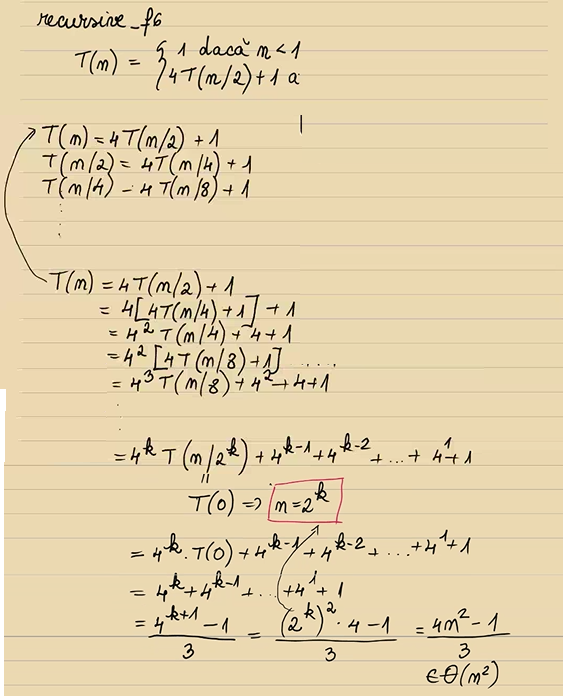 recursive_f6
T(n) = { 1 dacă n < 1
4T(n/2) + 1 a
T(n) = 4T(n/2) + 1
T(n/2) = 4T(n/4) + 1
T(n/4) = 4T(n/8) + 1
⋮
T(n) = 4T(n/2) + 1
= 4[4T(n/4) + 1] + 1
= 4² T(n/4) + 4 + 1
= 4² [4T(n/8) + 1] ....
= 4³ T(n/8) + 4² + 4 + 1
⋮
= 4^k T(n/2^k) + 4^(k-1) + 4^(k-2) + ... + 4¹ + 1
=
T(0) => n = 2^k
= 4^k · T(0) + 4^(k-1) + 4^(k-2) + ... + 4¹ + 1
= 4^k + 4^(k-1) + ... + 4¹ + 1
= (4^(k+1) - 1)/3 = ((2^k)² · 4 - 1)/3 = (4n² - 1)/3
∈ Θ(n²)